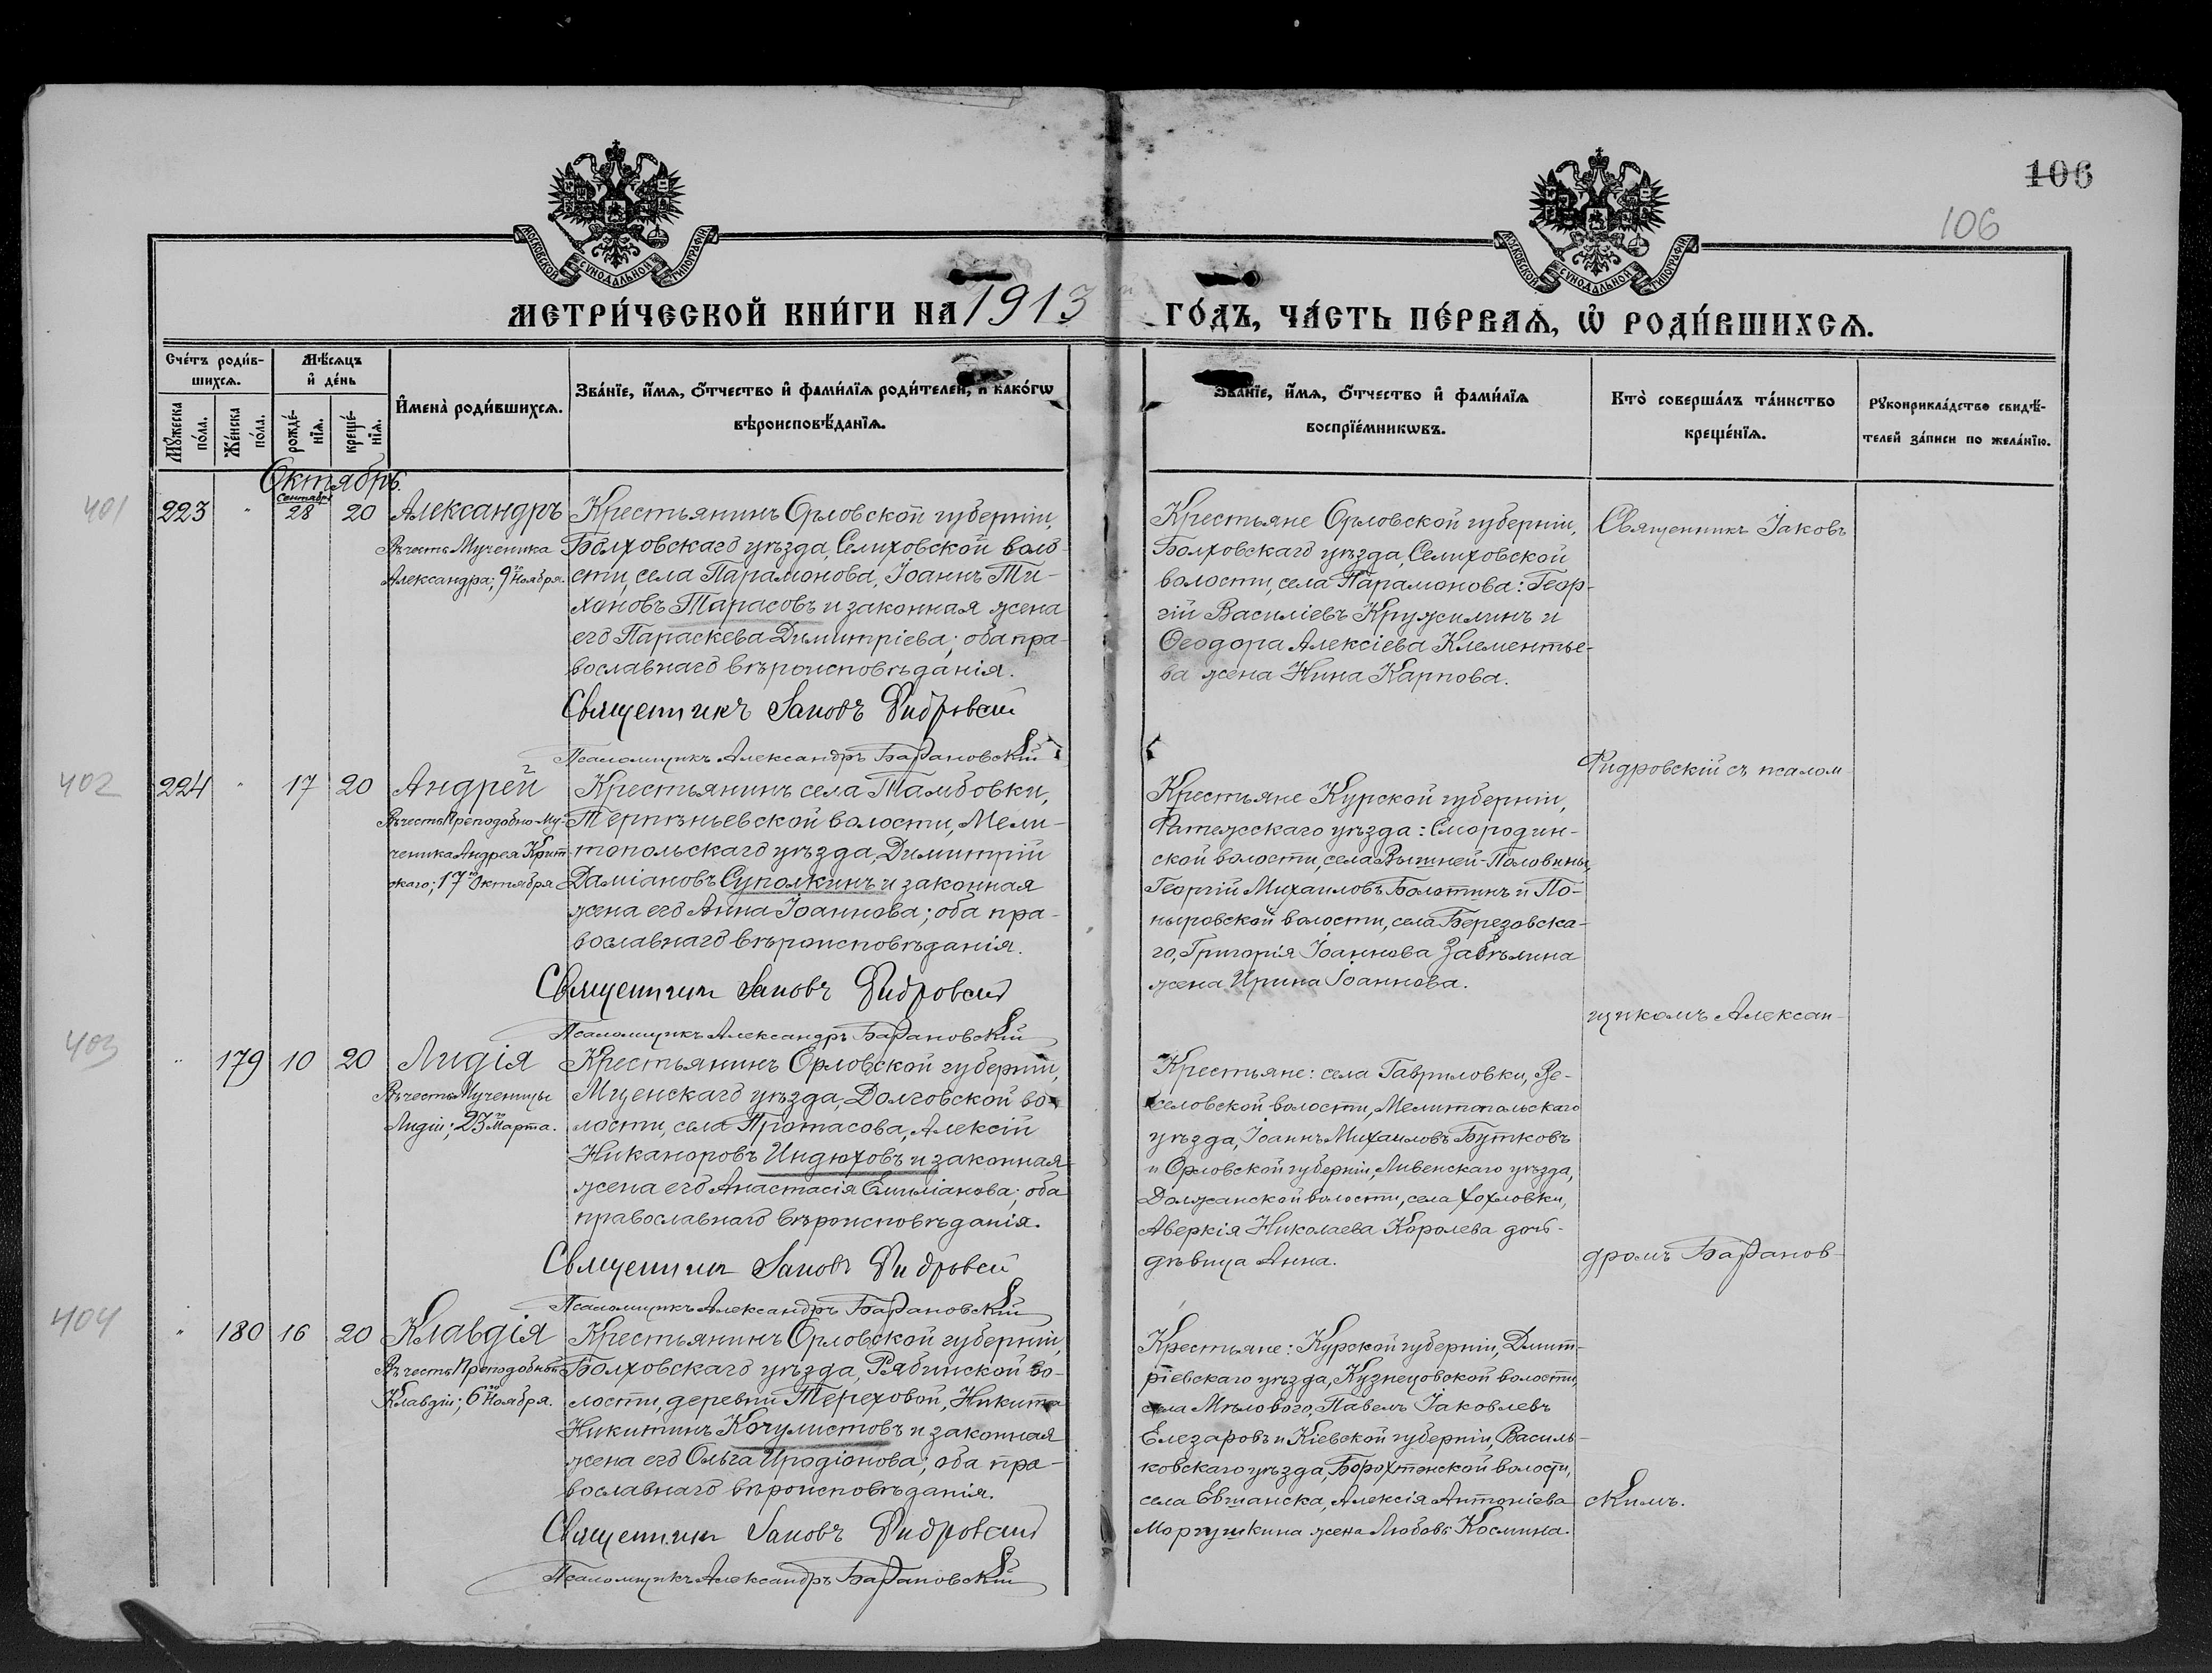 106
106
МОСКОВСКОЙ СѴНОДАЛЬНОЙ ТИПОГРАФІИ
МОСКОВСКОЙ СѴНОДАЛЬНОЙ ТИПОГРАФІИ
МЕТРИ́ЧЕСКОЙ КНИ́ГИ НА 1913 ГО́ДЪ, ЧА́СТЬ ПЕ́РВАѦ, Ѡ҆ РОДИ́ВШИХСѦ.
Сче́тъ роди́в-
шихсѧ.
Мꙋ́жеска
по́ла.
Же́нска
по́ла.
Мѣ́сѧцъ
и҆ де́нь
рожде́-
нїѧ.
креще́-
нїѧ.
И҆мена̀ роди́вшихсѧ.
Зва́нїе, и҆́мѧ, ѻ҆́тчество и҆ фами́лїѧ роди́телей, и҆ како́гѡ
вѣроисповѣ́данїѧ.
Зва́нїе, и҆́мѧ, ѻ҆́тчество и҆ фами́лїѧ
воспрїе́мникѡвъ.
Кто̀ соверша́лъ та́инство
креще́нїѧ.
Рꙋкоприкла́дство свидѣ́-
телей за́писи по жела́нїю.
Октябрь.
401
223
"
Сентября
28
20
Александръ
Въ честь Мученика
Александра; 9го Ноября.
Крестьянинъ Орловской губерніи,
Болховскаго уѣзда, Селиховской воло-
сти, села Парамонова, Іоаннъ Ти-
хоновъ Тарасовъ и законная жена
его Параскева Димитріева; оба пра-
вославнаго вѣроисповѣданія.
Священникъ Іаковъ Фидровскій
Псаломщикъ Александръ Барановскій
Крестьяне Орловской губерніи,
Болховскаго уѣзда, Селиховской
волости, села Парамонова: Геор-
гій Василіевъ Кружилинъ и
Ѳеодора Алексіева Клементье-
ва жена Нина Карпова.
Священникъ Іаковъ
402
224
"
17
20
Андрей
Въ честь Преподобно-Му-
ченика Андрея Крит-
скаго; 17го Октября
Крестьянинъ села Тамбовки,
Терпѣньевской волости, Мели-
топольскаго уѣзда, Димитрій
Даміановъ Суполкинъ и законная
жена его Анна Іоаннова; оба пра-
вославнаго вѣроисповѣданія.
Священникъ Іаковъ Фидровскій
Псаломщикъ Александръ Барановскій
Крестьяне Курской губерніи,
Фатежскаго уѣзда: Смородин-
ской волости, села Вышней-Половины,
Георгій Михаиловъ Болотинъ и По-
ныровской волости, села Березовска-
го, Григорія Іоаннова Забѣлина
жена Ирина Іоаннова.
Фидровскій съ псалом-
щикомъ Алексан-
403
"
179
10
20
Лидія
Въ честь Мученицы
Лидіи; 23го Марта.
Крестьянинъ Орловской губерніи,
Мценскаго уѣзда, Долговской во-
лости, села Протасова, Алексій
Никаноровъ Индюховъ и законная
жена его Анастасія Емиліанова; оба
православнаго вѣроисповѣданія.
Священникъ Іаковъ Фидровскій
Псаломщикъ Александръ Барановскій
Крестьяне: села Гавриловки, Ве-
селовской волости, Мелитопольскаго
уѣзда, Іоаннъ Михаиловъ Бутковъ
и Орловской губерніи, Ливенскаго уѣзда,
Должанской волости, села Хохловки,
Аверкія Николаева Королева дочь-
дѣвица Анна.
дромъ Баранов-
404
"
180
16
20
Клавдія
Въ честь Преподобной
Клавдіи; 6го Ноября.
Крестьянинъ Орловской губерніи,
Болховскаго уѣзда, Рябинской во-
лости, деревни Тереховой, Никита
Никитинъ Кочулистовъ и законная
жена его Ольга Иродіонова; оба пра-
вославнаго вѣроисповѣданія.
Священникъ Іаковъ Фидровскій
Псаломщикъ Александръ Барановскій
Крестьяне: Курской губерніи, Дмит-
ріевскаго уѣзда, Кузнецовской волости,
села Мѣлового, Павелъ Іаковлевъ
Елезаровъ и Кіевской губерніи, Василь-
ковскаго уѣзда, волости,
села Алексія Антоніева
Моргушкина жена Любовь Космина.
скимъ.